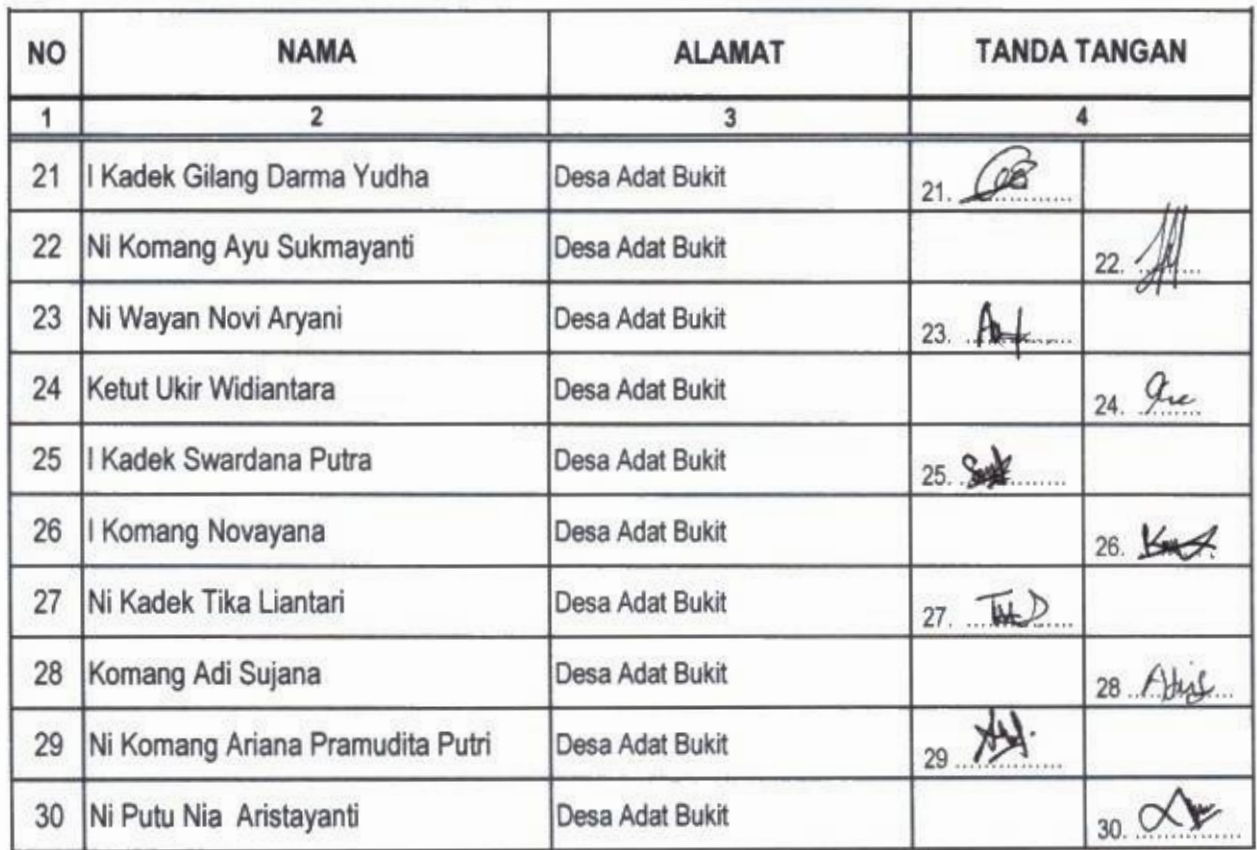 NO NAMA ALAMAT TANDA TANGAN
1 2 3 4
21 I Kadek Gilang Darma Yudha Desa Adat Bukit 21. ............
22 Ni Komang Ayu Sukmayanti Desa Adat Bukit 22. ............
23 Ni Wayan Novi Aryani Desa Adat Bukit 23. ............
24 Ketut Ukir Widiantara Desa Adat Bukit 24. ............
25 I Kadek Swardana Putra Desa Adat Bukit 25. ............
26 I Komang Novayana Desa Adat Bukit 26. ............
27 Ni Kadek Tika Liantari Desa Adat Bukit 27. ............
28 Komang Adi Sujana Desa Adat Bukit 28 ............
29 Ni Komang Ariana Pramudita Putri Desa Adat Bukit 29 ............
30 Ni Putu Nia Aristayanti Desa Adat Bukit 30. ............